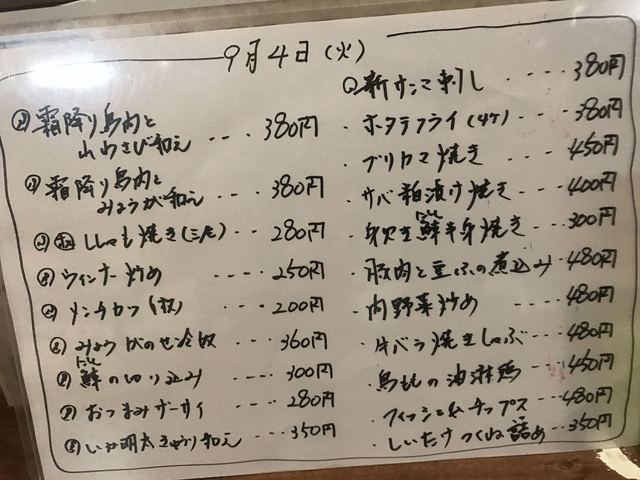 9月4日(火)
霜降り鳥肉と
山わさび和え ---- 380円
霜降り鳥肉と
みょうが和え --- 380円
ししゃも焼き(三尾) --- 280円
ウィンナー炒め ---- 250円
メンチカツ(1枚) ---- 200円
みょうがのせ冷奴 ---- 360円
にしん
鰊の切り込み --- 300円
おつまみザーサイ --- 280円
いか明太きゅうり和え --- 350円
新サンマ刺し ---- 380円
・ホタテフライ(4ケ) --- 380円
・ブリカマ焼き ---- 450円
・サバ粕漬け焼き --- 400円
にしん
・身欠き鰊半身焼き --- 300円
・豚肉と豆ふの煮込み --- 480円
肉野菜炒め --- 480円
・牛バラ焼きしゃぶ --- 480円
・鳥ももの油淋鶏 --- 450円
・フィッシュ&チップス --- 480円
・しいたけつくね詰め --- 350円